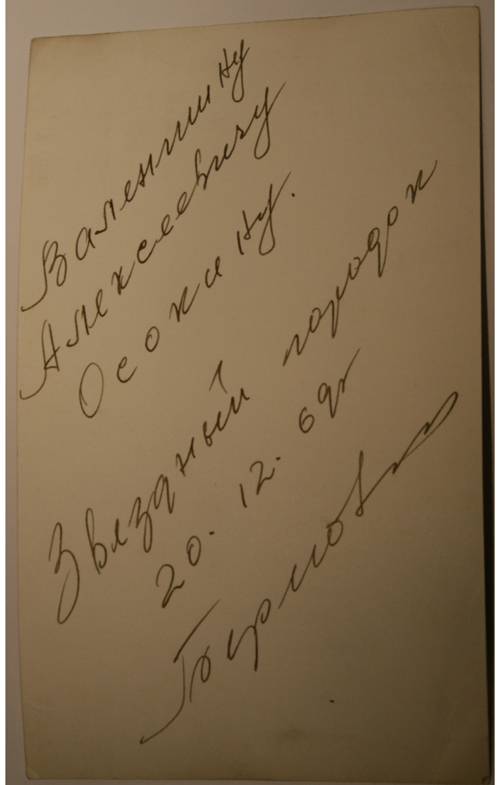 Валентину
Алексеевичу
Осокину.
Звездный городок
20. 12. 69г